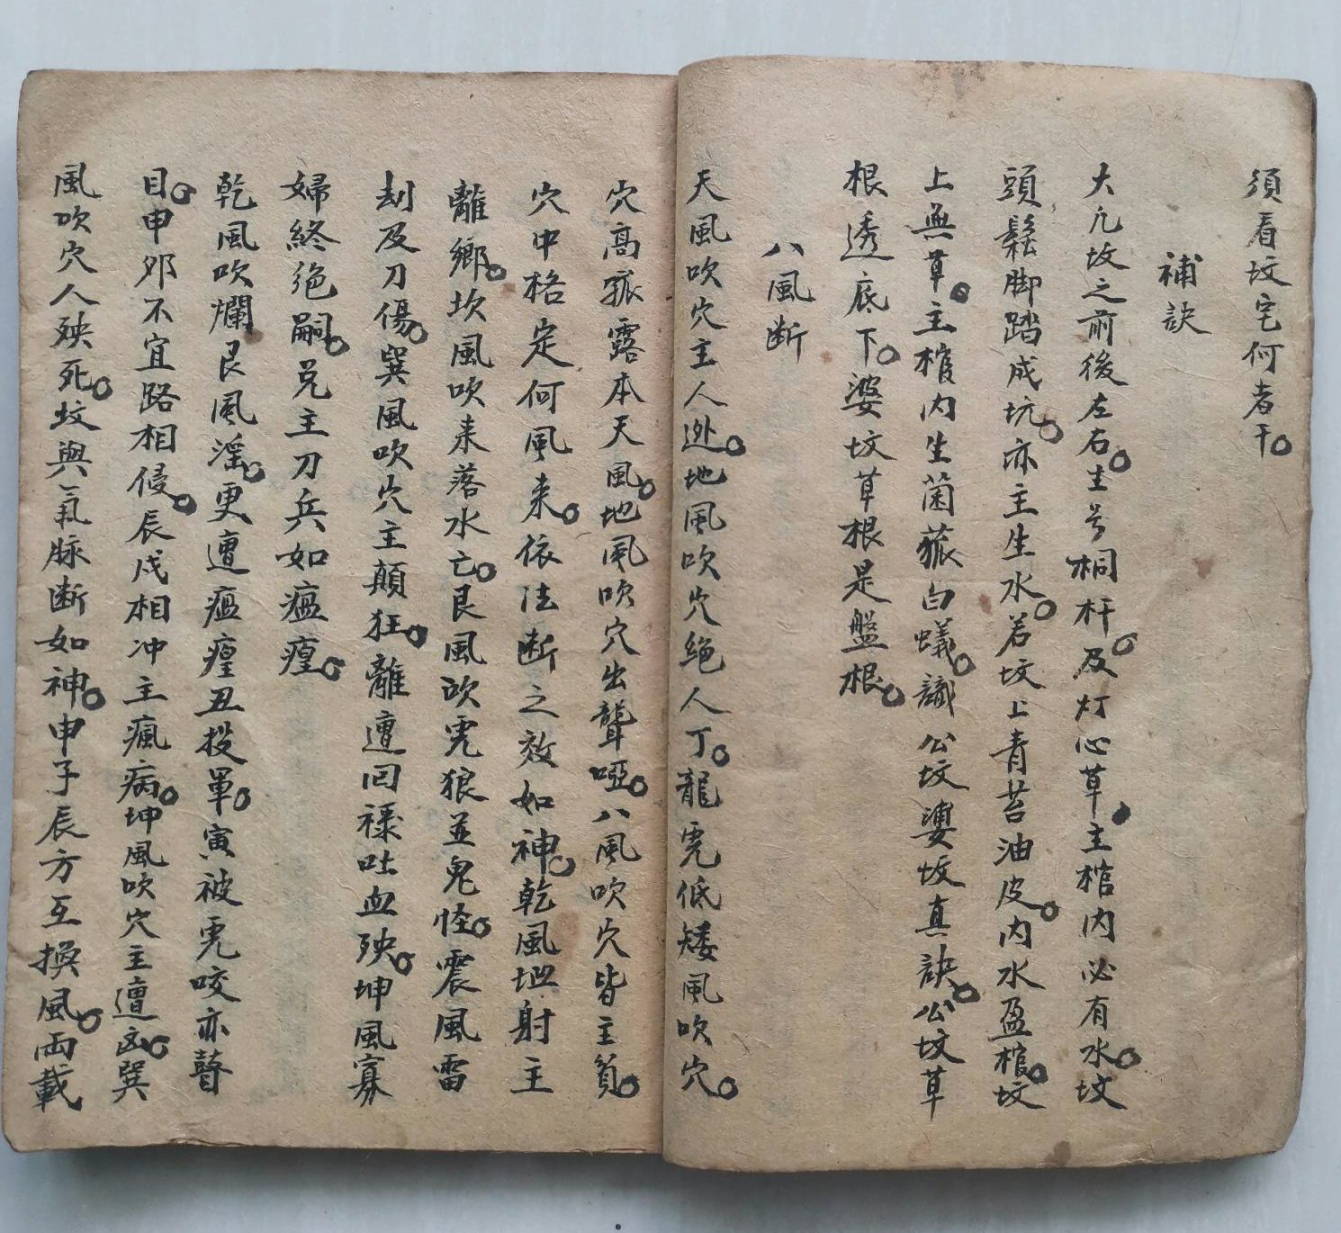 須看坟宅何者干。
補訣
大凡坟之前後左右。生号桐杆。及灯心草。主棺内必有水。坟
頭鬆脚踏成坑。亦主生水。若坟上青苔油皮。内水盈棺。坟
上無草。主棺内生菌菰白蟻。識公坟婆坟真訣。公坟草
根透底下。婆坟草根是盤根。
八風断
天風吹穴主人迯。地風吹穴絶人丁。龍虎低矮風吹穴。
穴高孤露本天風。地風吹穴出聾啞。八風吹穴皆主貧。
穴中格定何風来。依法断之效如神。乾風凹射主
離鄉。坎風吹来落水亡。艮風吹虎狼並鬼怪。震風雷
刦及刀傷。巽風吹穴主顛狂。離遭回祿吐血殃。坤風寡
婦終絶嗣。兑主刀兵如瘟㾮。
乾風吹爛艮風淫。更遭瘟㾮丑投軍。寅被虎咬亦瞽
目。申夘不宜路相侵。辰戌相冲主瘋病。坤風吹穴主遭凶。巽
風吹穴人殃死。坟與氣脉断如神。申子辰方互換風。両載